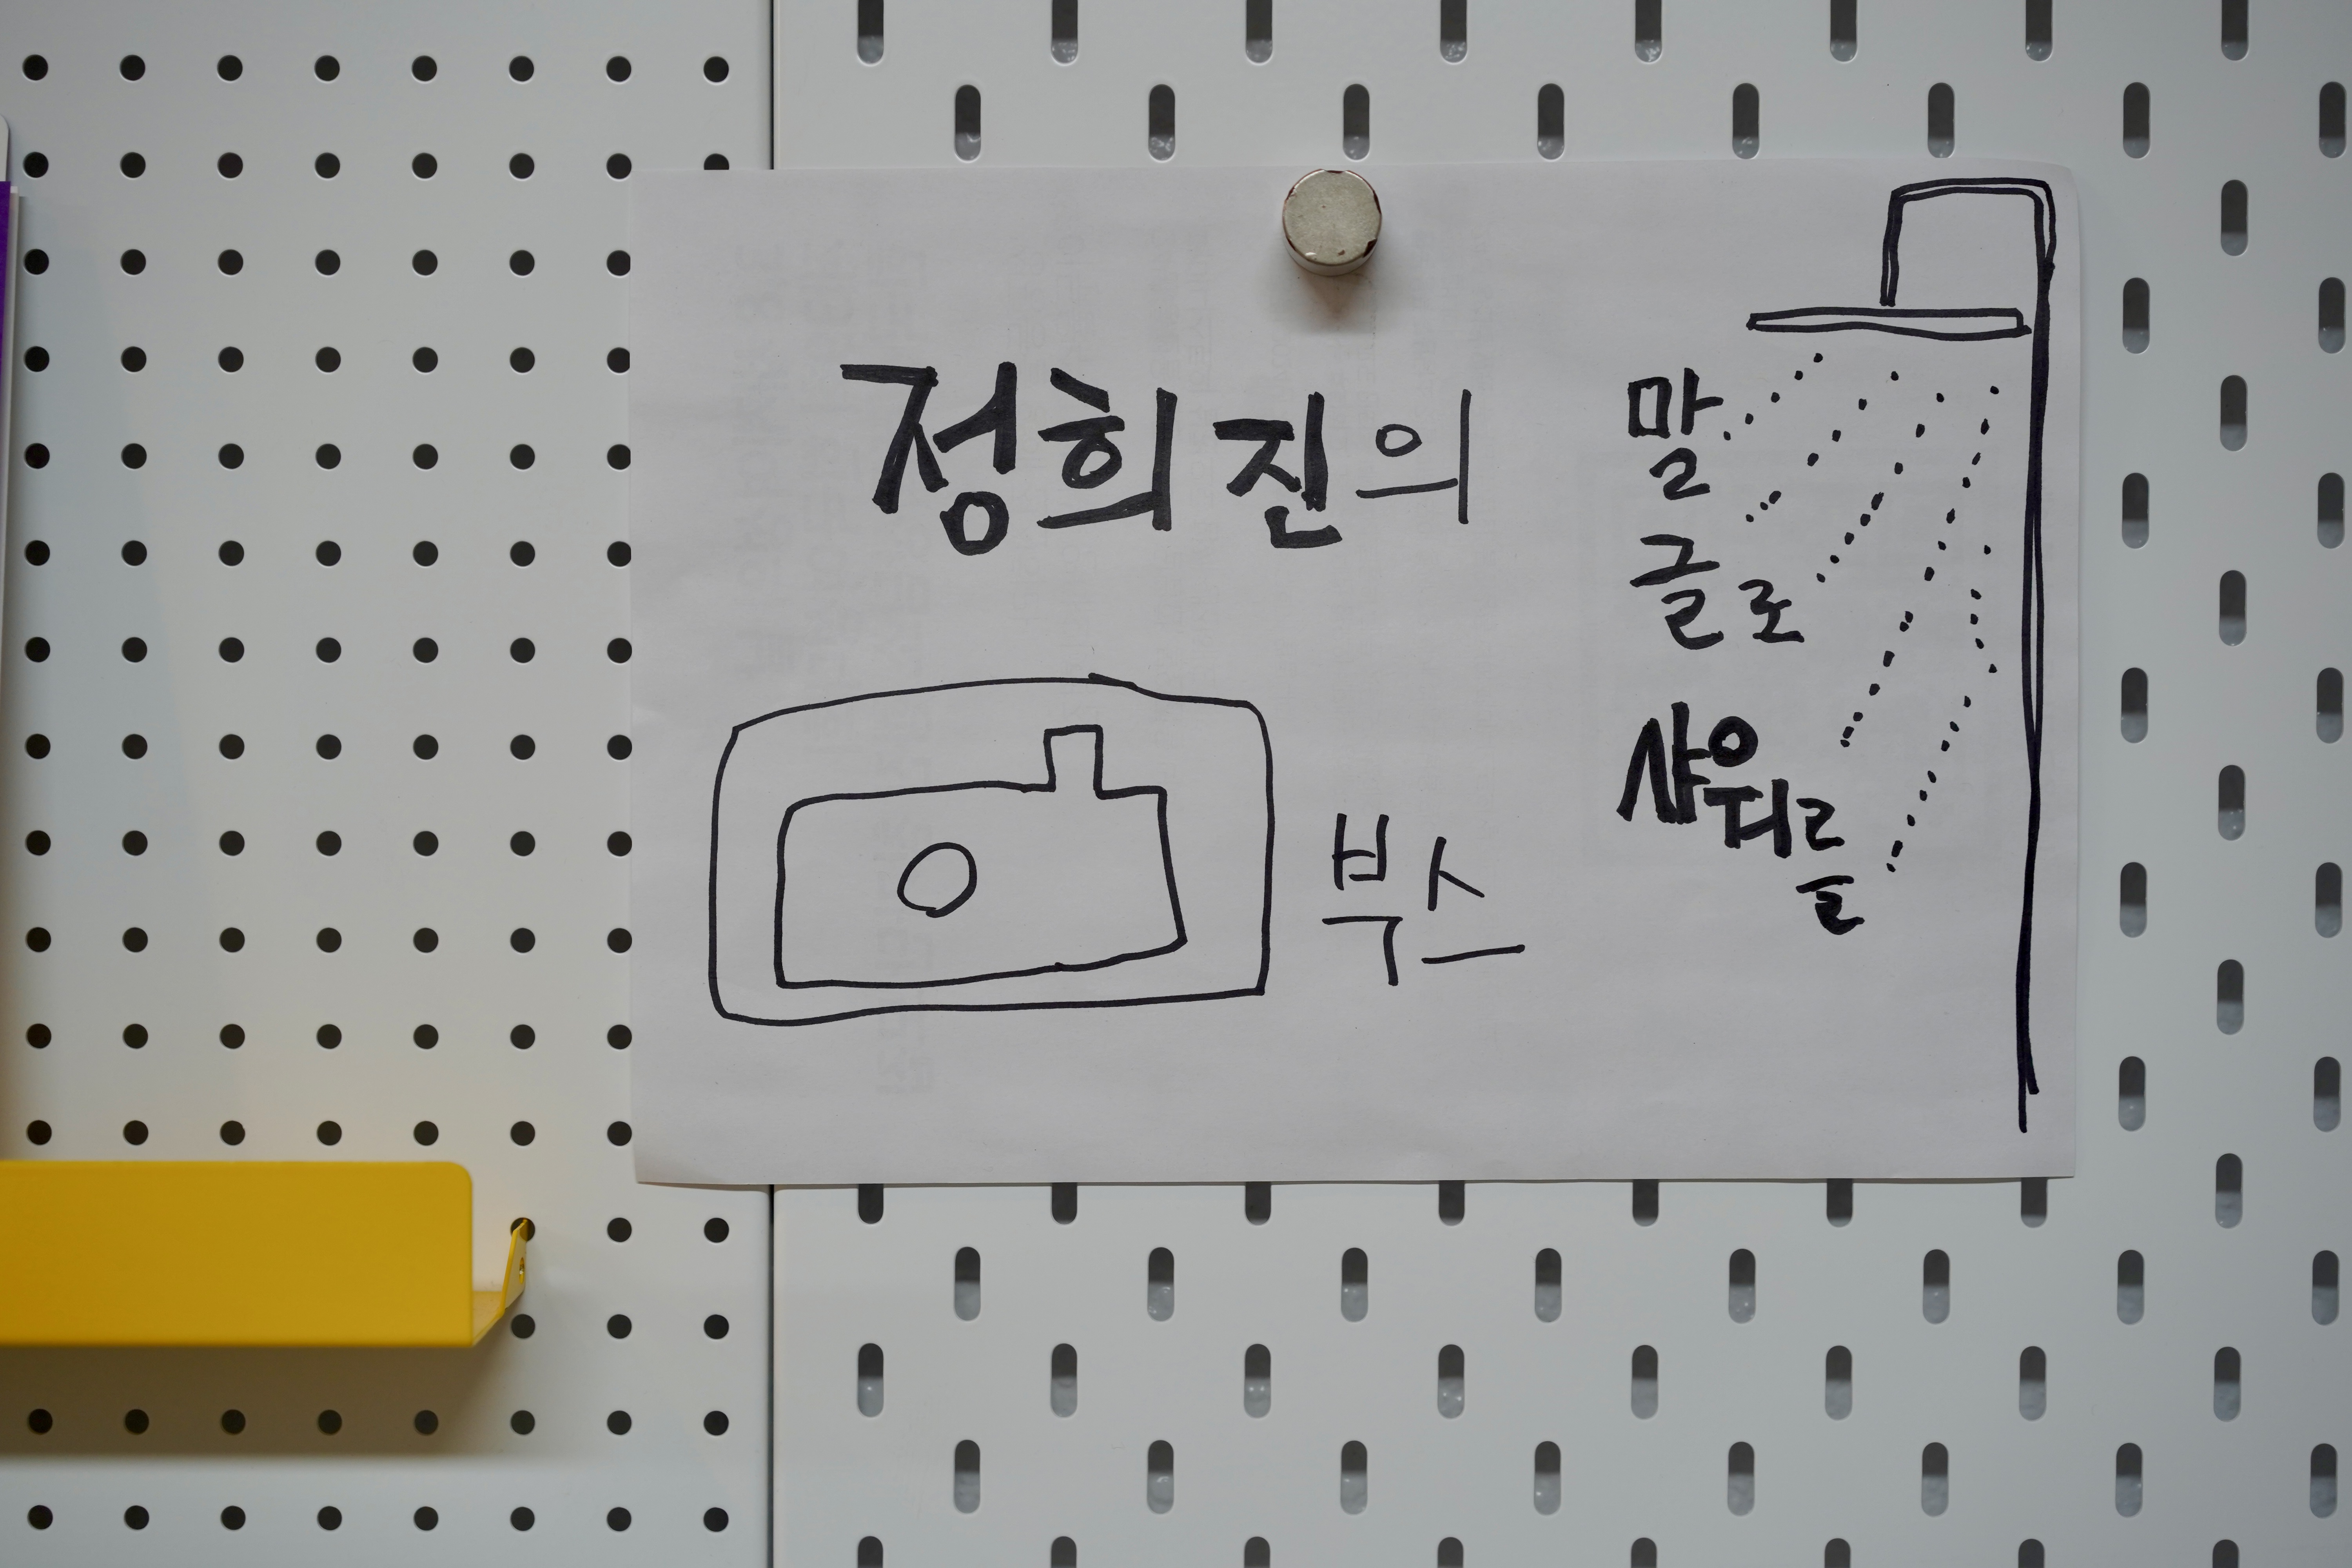 정희진의
부스
말
글로
샤워를